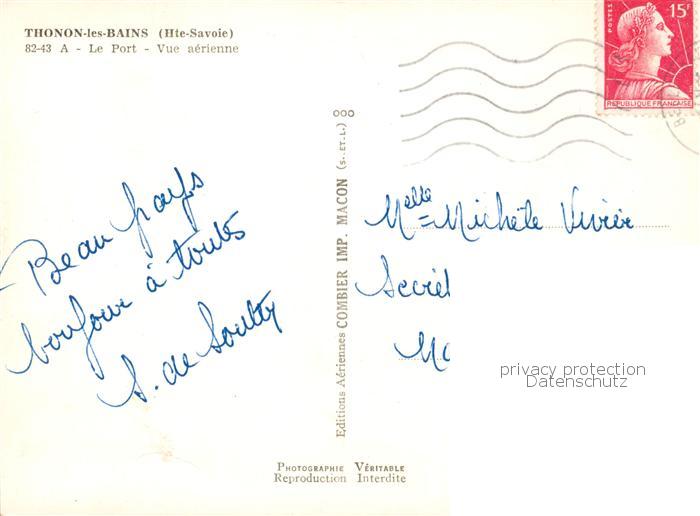 THONON-les-BAINS (Hte-Savoie)
82-43 A - Le Port - Vue aérienne
POSTES
15F
REPUBLIQUE FRANÇAISE
Beau pays
bonjour à toutes
S. de
Melle Michèle Vivier
Secrét
Mo
Editions Aériennes COMBIER IMP. MACON (S.-ET-L.)
privacy protection
Datenschutz
PHOTOGRAPHIE VÉRITABLE
Reproduction Interdite